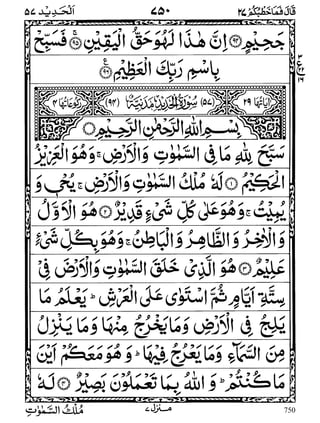 قَالَ فَمَا خَطْبُكُمْ ٢٧ ٧٥٠ اَلْحَدِيْد ٥٧
جَحِيْمٍ ﴿٩٤﴾ اِنَّ هٰذَا لَهُوَ حَقُّ الْيَقِيْنِ ﴿٩٥﴾ فَسَبِّحْ
بِاسْمِ رَبِّكَ الْعَظِيْمِ ﴿٩٦﴾
اٰيَاتُهَا ٢٩ (٥٧) سُوْرَةُ الْحَدِيْدِ مَدَنِيَّةٌ (٩٤) رُكُوْعَاتُهَا ٤
بِسْمِ اللّٰهِ الرَّحْمٰنِ الرَّحِيْمِ
سَبَّحَ لِلّٰهِ مَا فِى السَّمٰوٰتِ وَالْاَرْضِ ۚ وَهُوَ الْعَزِيْزُ
الْحَكِيْمُ ﴿١﴾ لَهٗ مُلْكُ السَّمٰوٰتِ وَالْاَرْضِ ۚ يُحْيٖ وَ
يُمِيْتُ ۚ وَهُوَ عَلٰى كُلِّ شَىْءٍ قَدِيْرٌ ﴿٢﴾ هُوَ الْاَوَّلُ
وَالْاٰخِرُ وَالظَّاهِرُ وَالْبَاطِنُ ۚ وَهُوَ بِكُلِّ شَىْءٍ
عَلِيْمٌ ﴿٣﴾ هُوَ الَّذِىْ خَلَقَ السَّمٰوٰتِ وَالْاَرْضَ فِىْ
سِتَّةِ اَيَّامٍ ثُمَّ اسْتَوٰى عَلَى الْعَرْشِ ؕ يَعْلَمُ مَا
يَلِجُ فِى الْاَرْضِ وَمَا يَخْرُجُ مِنْهَا وَمَا يَنْزِلُ
مِنَ السَّمَآءِ وَمَا يَعْرُجُ فِيْهَا ؕ وَهُوَ مَعَكُمْ اَيْنَ
مَا كُنْتُمْ ؕ وَاللّٰهُ بِمَا تَعْمَلُوْنَ بَصِيْرٌ ﴿٤﴾ لَهٗ
مُلْكُ السَّمٰوٰتِ منزل ٧ 750